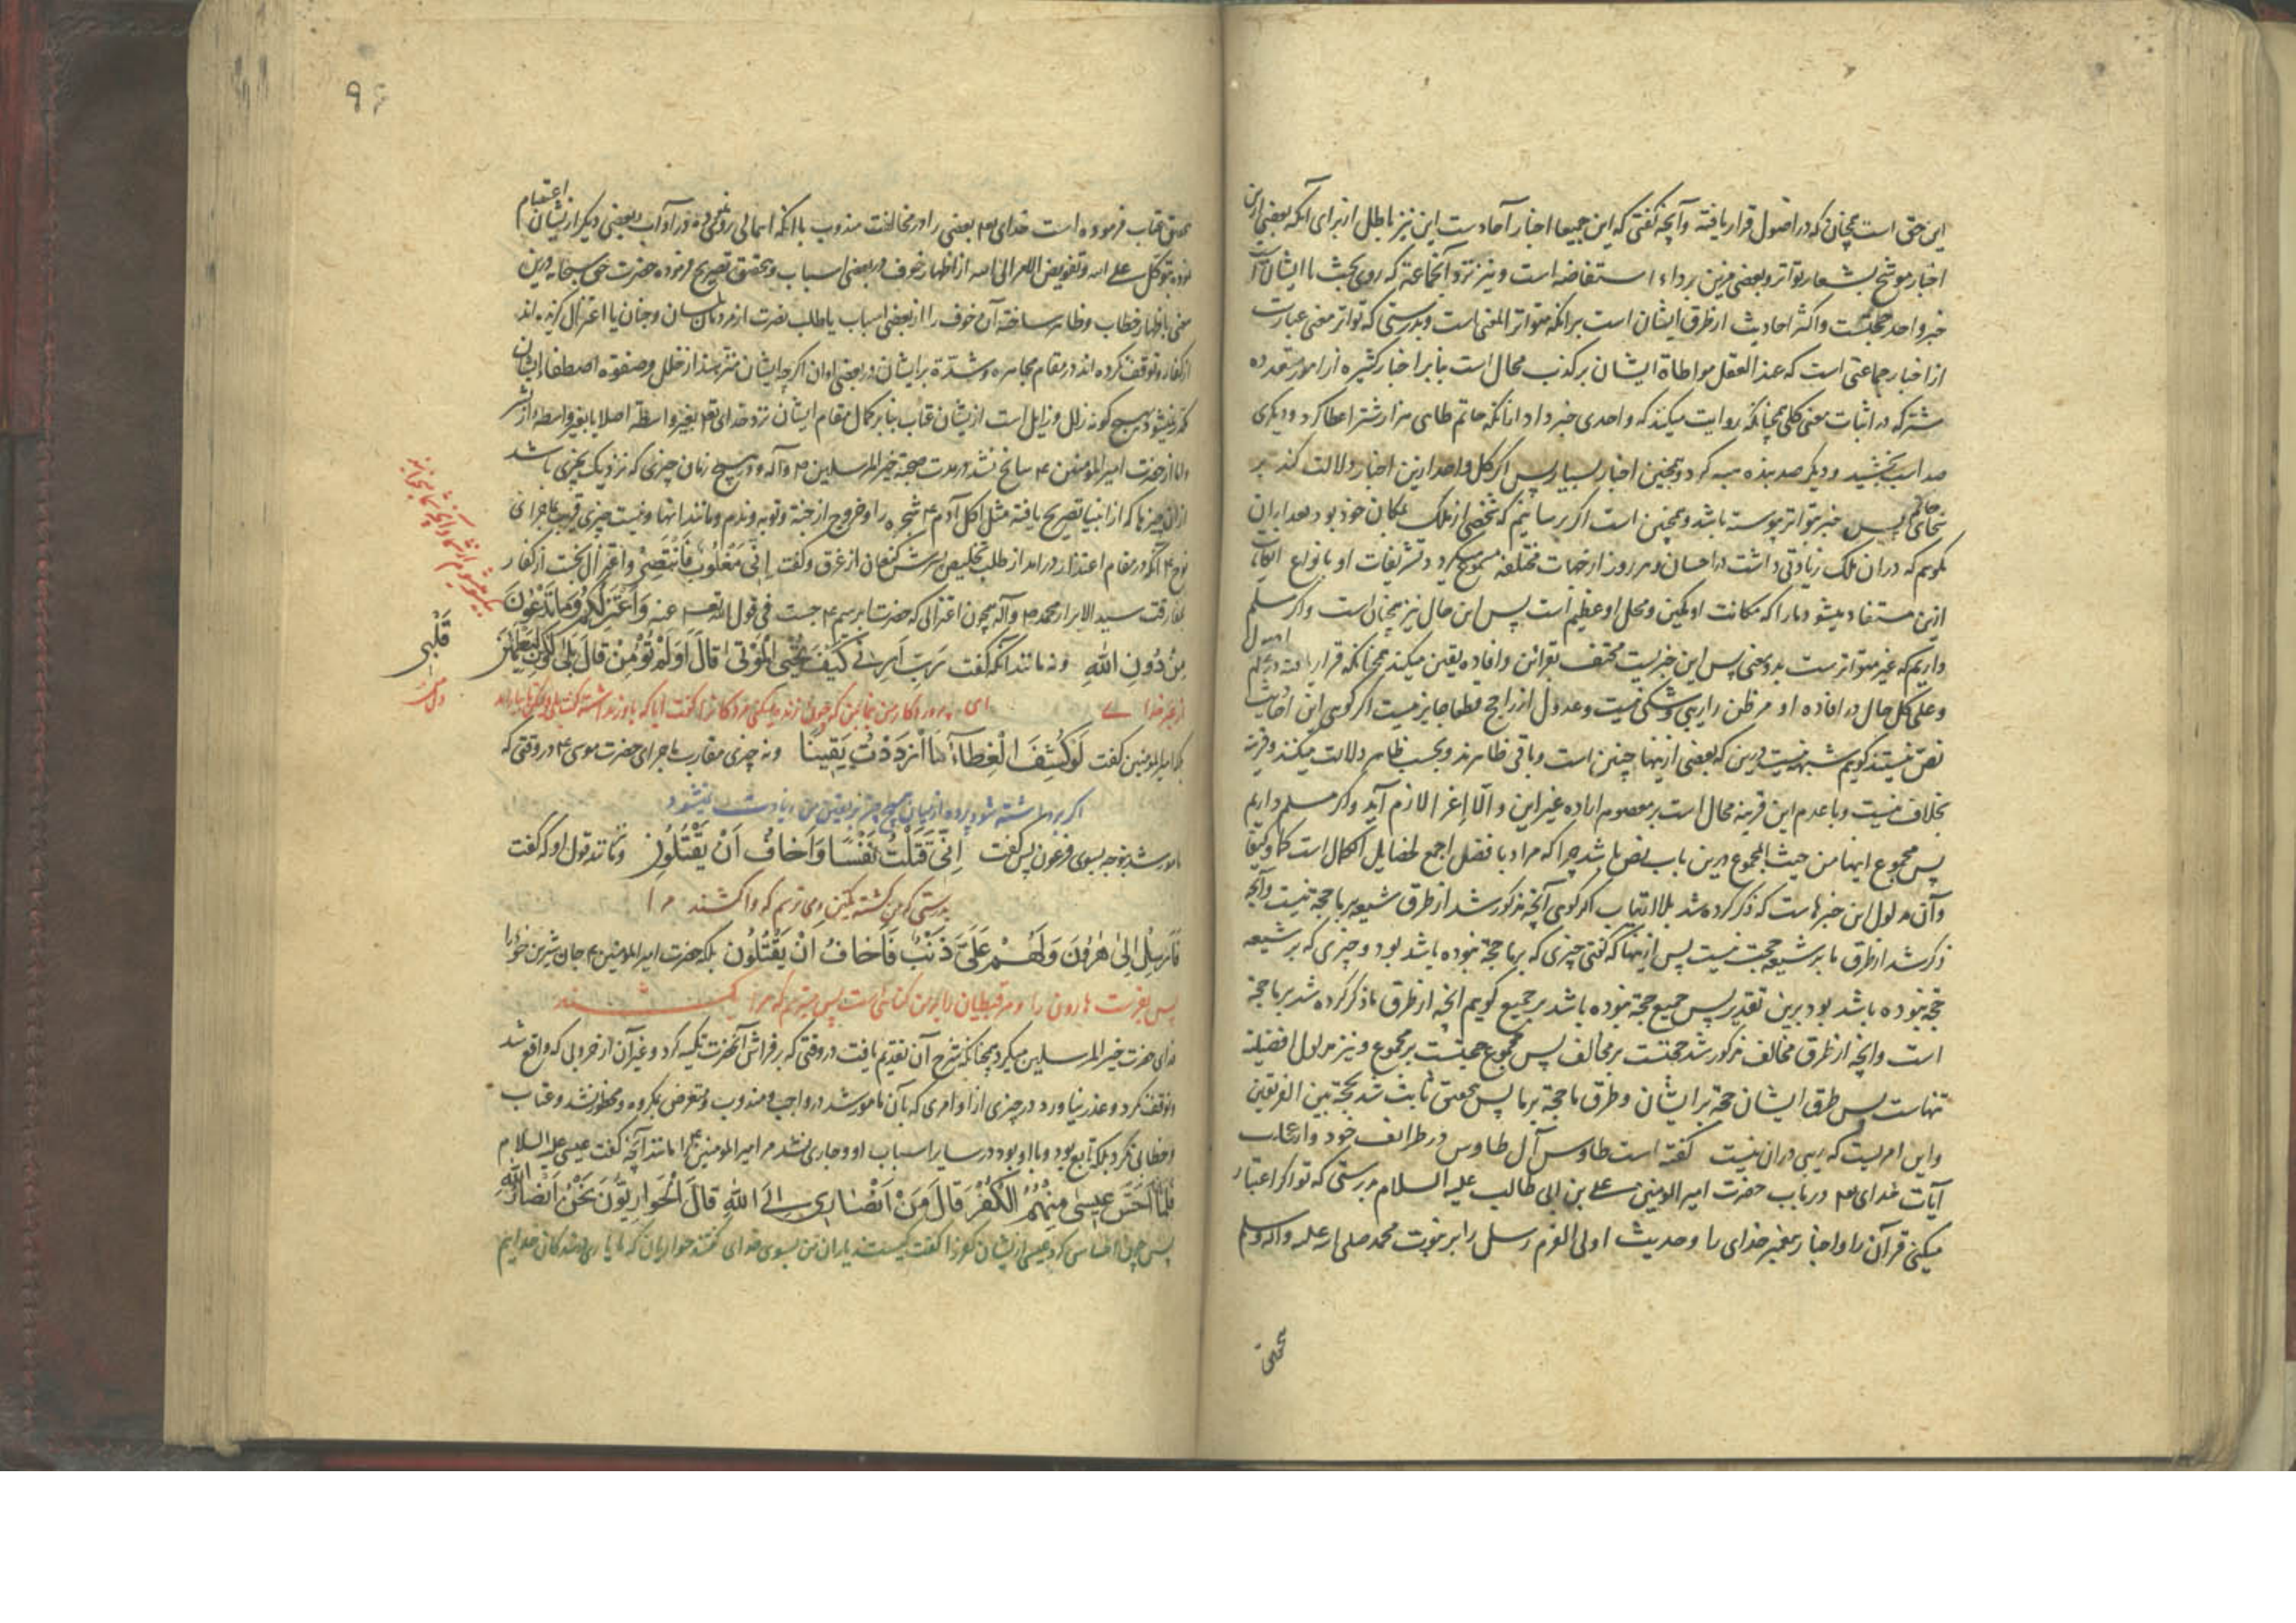 این حق است همچنان که در اصول قرار یافته و آنچه گفتی که این جمیعا اخبار آحادست این نیز باطل از برای آنکه بعضی ازین
اخبار موشح بشعار تواتر و بعضی مزین برداء استفاضه است و نیز نزد آنجماعة که روی بحث با ایشان است
خبر واحد حجتست و اکثر احادیث از طرق ایشان است برانکه متواتر المعنی است و بدرستی که تواتر معنی عبارت
از اخبار جماعتی است که عند العقل مواطاة ایشان بر کذب محال است بنابر اخبار کثیره از امور متعدده
مشترکه در اثبات معنی کلی همچنانکه روایت میکنند که واحدی خبر داد از آنکه حاتم طایی هزار شتر اعطا کرد و دیگری
صد اسب بخشید و دیگر صد بنده هبه کرد و همچنین اخبار بسیار پس اگر کل واحد ازین اخبار دلالت کند بر
سخای حاتم پس خبر متواتر پیوسته باشد و همچنین است اگر برسانیم که شخصی از ملک بمکان خود بود بعد از آن
بگویم که در آن ملک زیادتی داشت در احسان و هر روز از جهات مختلفه مسموع میکرد و تشریفات او بانواع
ازین مستفاد میشود مارا که مکانت او مکین و محل او عظیم است پس این حال نیز همچنان است و اگر مسلم
داریم که غیر متواترست بدو معنی پس این خبریست محتف بقراین و افاده یقین میکند همچنانکه قرار یافته در علم اصول
و علی کل حال در افاده او مر ظن را ریبی و شکی نیست و عدول از راجح قطعا جایز نیست اگر گویی این احادیث
نص نیستند گویم شبهه نیست درین که بعضی ازینها چنین است و باقی ظاهرند و بحسب ظاهر دلالت میکنند و قرینه
بخلاف نیست و با عدم این قرینه محال است بر معصوم اراده غیر این و الا اغرا لازم آید و اگر مسلم داریم
پس مجموع اینها من حیث المجموع درین باب نص باشد چرا که مراد بافضل اجمع لخصایل الکمال است کما و کیفا
و آن مدلول این خبرهاست که ذکر کرده شد بلا ارتیاب اگر گویی آنچه مذکور شد از طرق شیعه بر ما حجة نیست و آنچه
ذکر شد از طرق ما بر شیعه حجت نیست پس ازینها که گفتی چیزی که بر ما حجة نبوده باشد بود و چیزی که بر شیعه
حجة نبوده باشد بود برین تقدیر پس جمیع حجة نبوده باشد بر جمیع گویم آنچه از طرق ما ذکر کرده شد بر ما حجة
است و آنچه از طرق مخالف مذکور شد حجتست بر مخالف پس مجموع حجتست بر مجموع و نیز مدلول افضلیة
تنهاست پس طرق ایشان حجة بر ایشان و طرق ما حجة بر ما پس بمعنی ثابت شد بحجة بین الفریقین
و این امریست که ریبی در آن نیست گفته است طاوس آل طاوس در طرائف خود و از عجایب
آیات خدای تع در باب حضرت امیر المومنین علی بن ابی طالب علیه السلام بدرستی که تو اگر اعتبار
میکنی قرآن را و اخبار پیغمبر خدای را و حدیث اولی العزم رسل را بر نبوت محمد صلی الله علیه و اله وسلم
عتاب فرموده است خدای تع بعضی را در مخالفت مندوب با آنکه اهمالی و غیره در آداب و بعضی دیگر از یشان اعتصام
نموده بتوکل علی الله و تفویض الامر الی الله از اظهار خوف در بعضی اسباب و بتحقیق تصریح فرموده حضرت حق سبحانه درین
معنی باظهار خطاب و ظاهر ساخته آن خوف را از بعضی اسباب یا طلب نصرت از مردمان و چنان یا اعتزال کرده اند
از کفار و توقف کرده اند در مقام مجاهره و شدة بر ایشان و در بعضی اوان اگر چه ایشان منزهند از خلل و صفوه اصطفا ایشان
مکدر نمیشود بهیچ گونه زلل و زایل است از یشان عتاب بنابر کمال مقام ایشان نزد خدای تع بغیر واسطه اصلا یا بغیر واسطه از بشر
و اما از حضرت امیر المومنین ع سانح نشد در مدت صحبة خیر المرسلین ص و آله و در هیچ زمان چیزی که نزدیک بچیزی باشد
از ان چیزها که از انبیا تصریح یافته مثل اکل آدم ع شجره را و خروج از جنة و توبه و ندم و مانند اینها و نیست چیزی قریب بماجرای
نوح ع آنگه در مقام اعتذار در امد از طلب تخلیص پسرش کنعان از غرق و گفت اِنّی مَغْلُوبٌ فَانْتَصِرْ و اعتزال نجست از کفار
بمفارقت سید الابرار محمد ص و آله همچون اعتزالی که حضرت ابرهیم ع جست فی قول الله تع عنه وَاَعْتَزِلُكُمْ وَمَا تَدْعُونَ
مِنْ دُونِ اللهِ و نه مانند آنکه گفت رَبِّ اَرِنِی كَیْفَ تُحْیِی الْمَوْتَی قَالَ اَوَلَمْ تُؤْمِنْ قَالَ بَلَی وَلَكِنْ لِیَطْمَئِنَّ
قَلْبِی
دل من
از غیر خدا ای پروردگار من بنمای من که چون زنده میکنی مردگانرا گفت آیا که باور نداشته گفت بلی ولیکن تا بیارامد
بلکه امیر المومنین گفت لَوْ كُشِفَ الْغِطَاءُ مَا ازْدَدْتُ یَقِینًا و نه چیزی مقارب ماجرای حضرت موسی ع در وقتی که
اگر برداشته شود پرده از میان هیچ چیز بر یقین من زیادت نمیشود
مامور شد بتوجه بسوی فرعون پس گفت اِنّی قَتَلْتُ نَفْسًا وَاَخَافُ اَنْ یَقْتُلُونِ و نه مانند قول او که گفت
بدرستی که من کشته یکتن و می ترسم که واکشند مرا
فَاَرْسِلْ اِلَی هٰرُونَ وَلَهُمْ عَلَیَّ ذَنْبٌ فَاَخَافُ اَنْ یَقْتُلُونِ بلکه حضرت امیر المومنین ع جان شیرین خود را
پس بفرست هارون را و مر قبطیان را بر من گناهی است پس میترسم که مرا بکشند
فدای حضرت خیر المرسلین میکرد همچنانکه شرح آن تقدیم یافت در وقتی که بر فراش آنحضرت تکیه کرد و غیر آن از حروبی که واقع شد
و توقف نکرد و عذر نیاورد در چیزی از اوامری که بآن مامور شد در واجب و مندوب و متعرض مکروه و محظور نشد و عتاب
و خطائی نکرد بلکه تابع بود و با او بود در سایر اسباب او و جاری نشد مر امیر المومنین را مانند آنچه گفت عیسی علیه السلام
فَلَمَّا اَحَسَّ عِیسَی مِنْهُمُ الْكُفْرَ قَالَ مَنْ اَنْصَارِی اِلَی اللهِ قَالَ الْحَوَارِیُّونَ نَحْنُ اَنْصَارُ اللهِ
پس چون احساس کرد عیسی از یشان کفر را گفت کیستند یاران من بسوی خدای گفتند حواریان که ما یاری دهندگان خداییم